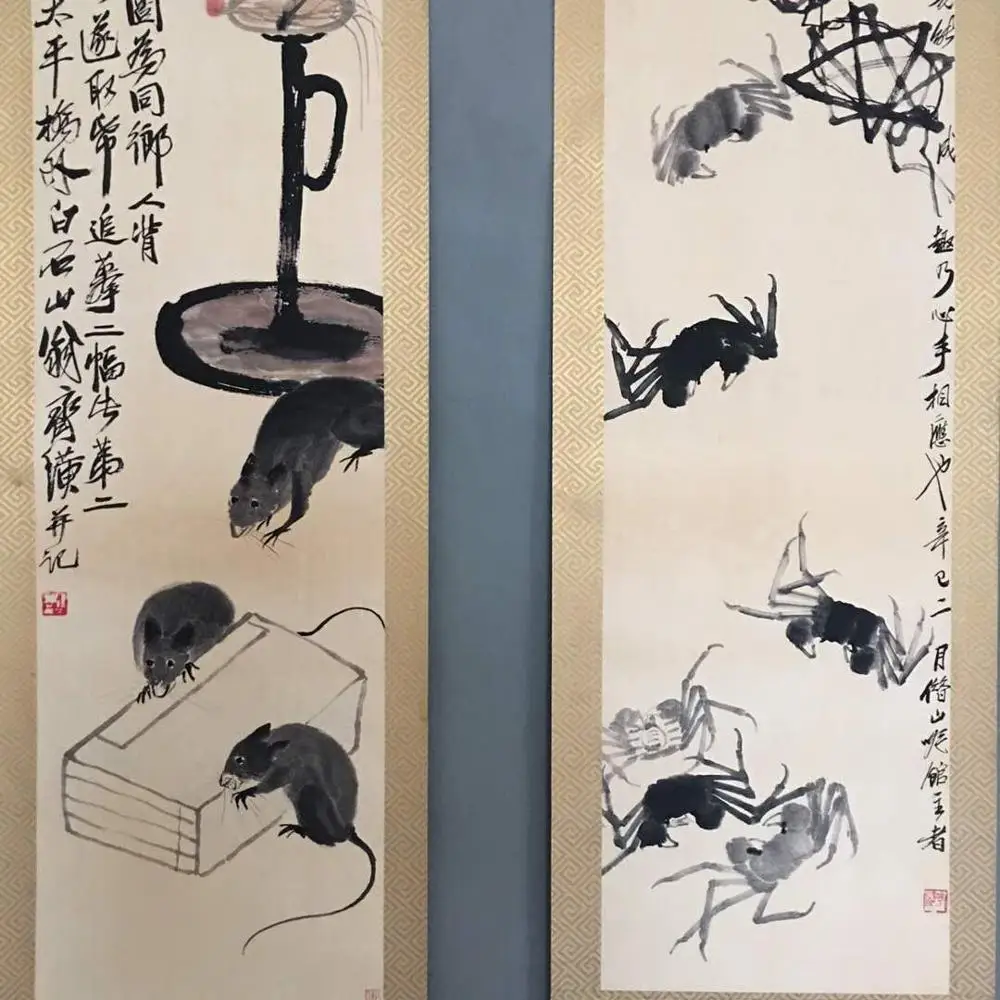 圖為同鄉人背
遂取帋追摹二幅此第二
太平橋外白石山翁齊璜并記
能成趣乃心手相應也辛巳二月借山吟館主者